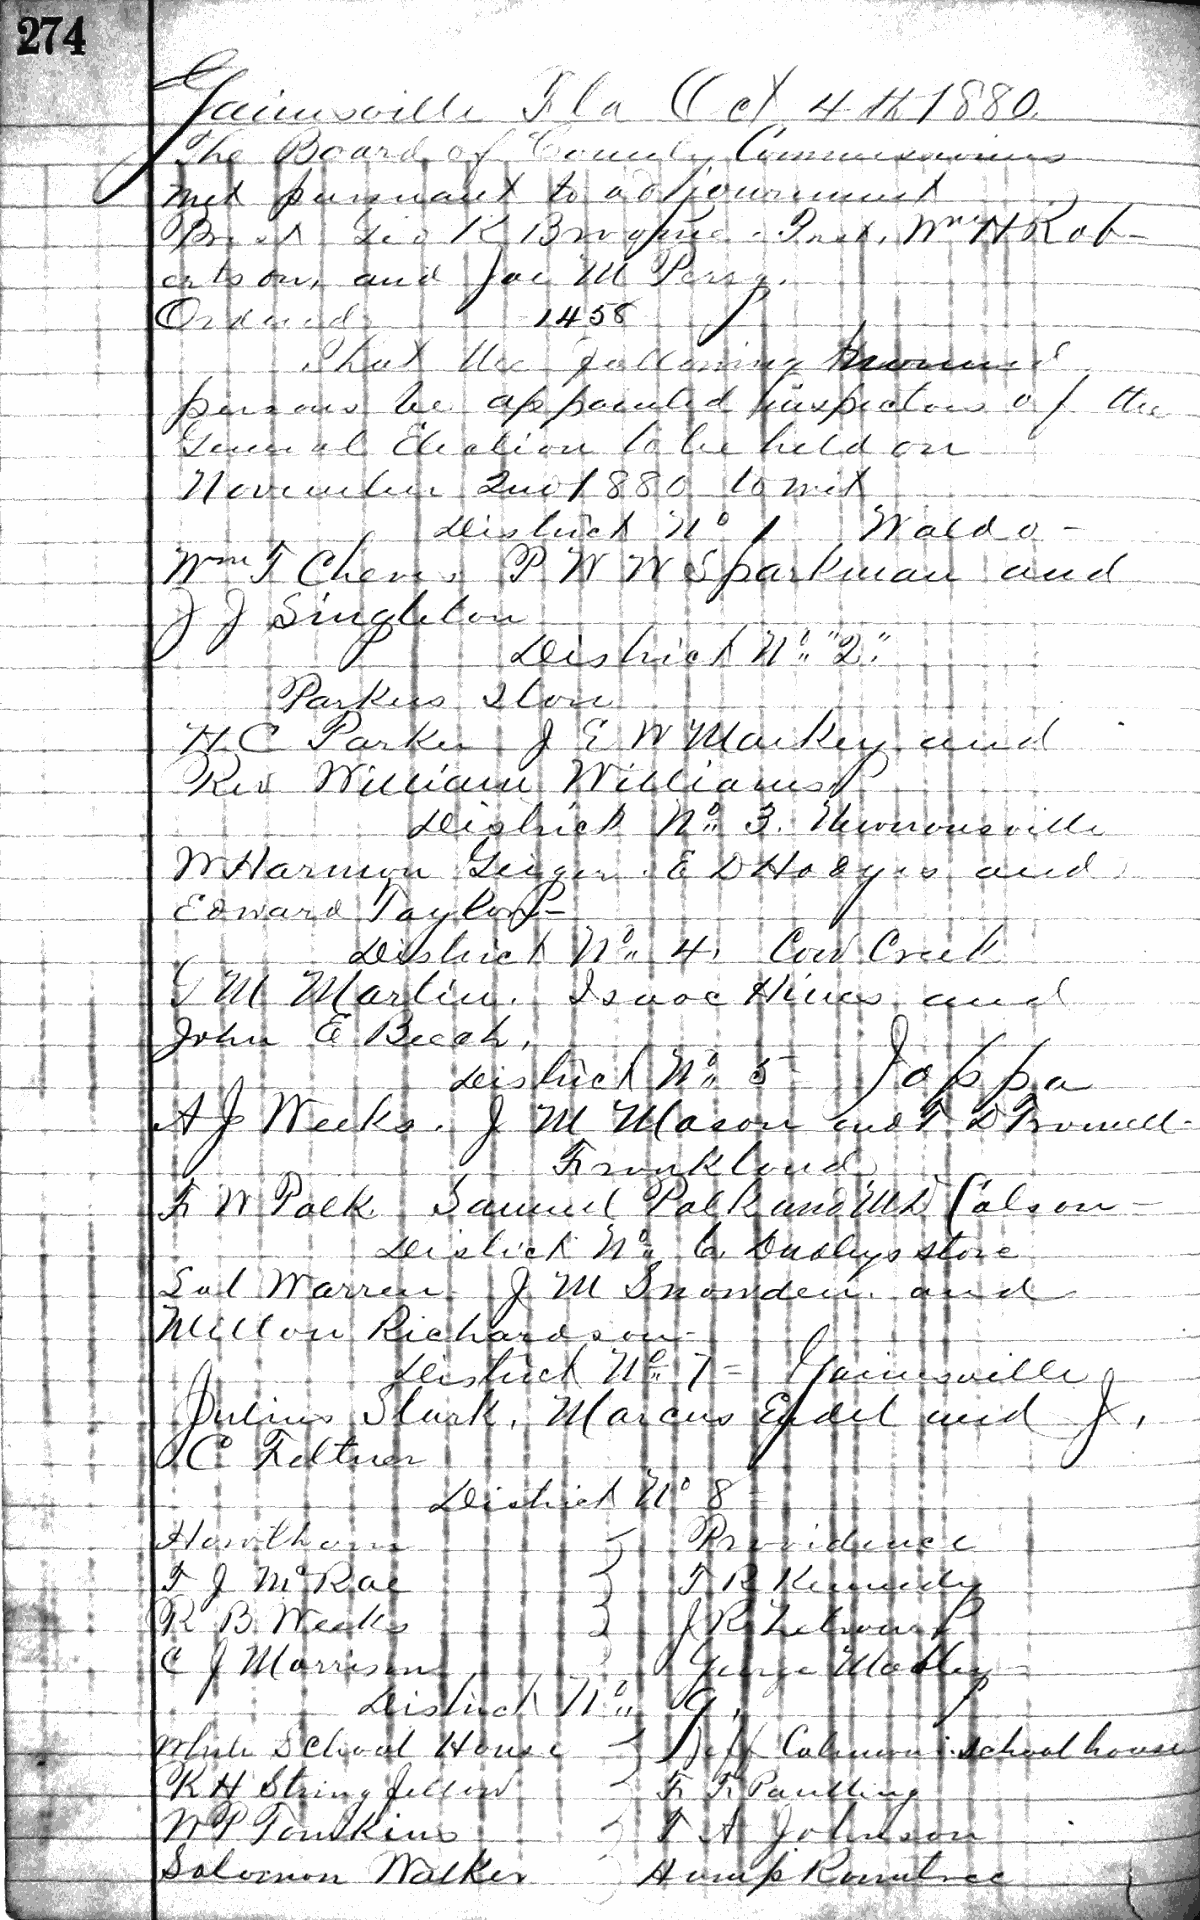 274
Gainesville Fla Oct 4th 1880.
The Board of County Commissioners
met pursuant to adjournment
Prest Geo K Broome Prest. Wm H Rob-
ertson, and Joe M Perry.
Ordered 1458
That the following named
persons be appointed inspectors of the
General Election to be held on
November 2nd 1880 to wit
District No 1 Waldo -
Wm T Cheves, P W W Sparkman and
J J Singleton
District No. "2."
Parkers Store
H C Parker J E W Markey and
Rev William Williams
District No. 3. Newnansville
W Harmon Geiger. E D Hodges and
Edward Taylor -
District No. 4, Cow Creek
G M Martin. Isaac Hines and
John E Beach.
District No. 5 Joppa
A J Weeks. J M Mason and T D
Frankland
F W Polk. Samuel Polk and M D Colson -
District No. 6. Dudleys store
Sol Warren. J M Snowden. and
Milton Richardson -
District No. 7 - Gainesville
Julius Stark, Marcus Endel and J.
C Feltner
District No 8
Hawthorn Providence
T J McRae T R Kennedy
R B Weeks J R
C J Morrison George Mobley
District No. 9.
White School House Jeff school house
R H Stringfellow F F Paulling
W P Tomkins T A Johnson
Solomon Walker Hamp Rountree